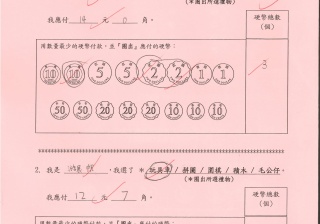 硬幣總數
(個)
*圈出所選禮物
我應付 14 元 0 角。
用數量最少的硬幣付款，並「圈出」應付的硬幣：
10 10 5 5 2 2 1 1
3
50 50 20 20 20 10 10 10
2. 我是 ，我選了 * 玩具車 / 拼圖 / 圍棋 / 繪本 / 毛公仔。
*圈出所選禮物
硬幣總數
(個)
我應付 12 元 7 角。
用數量最少的硬幣付款，並「圈出」應付的硬幣：